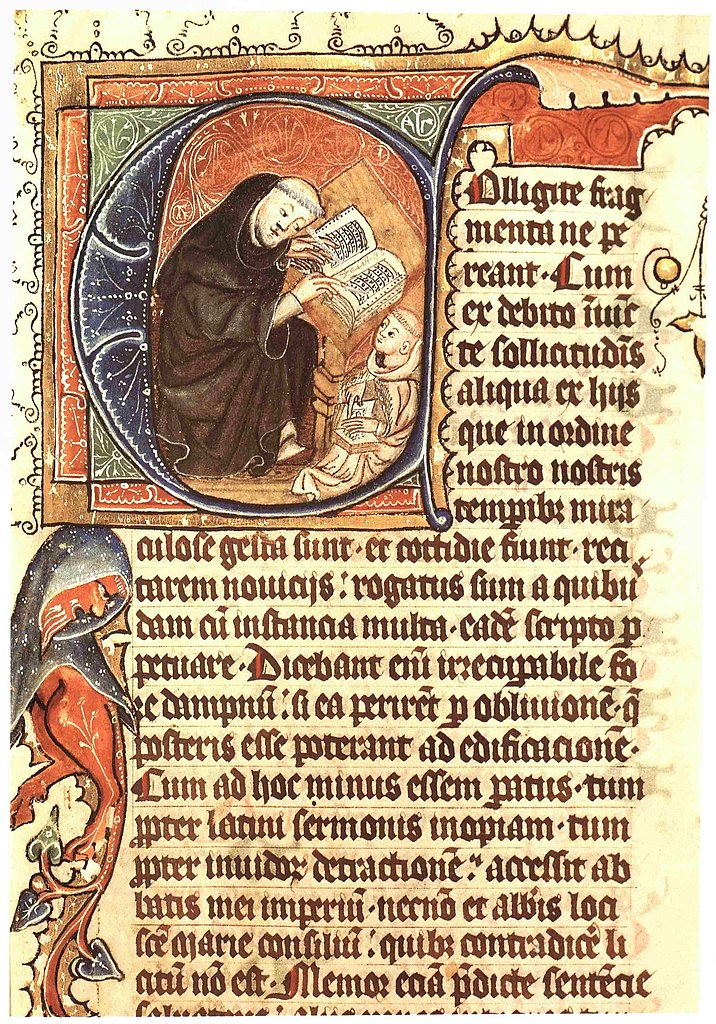 Olligite frag
menta ne pe
reant · Cum
ex debito īiūc
te sollicitudīs
aliqua ex hijs
que in ordine
nostro nostris
temꝑibꝫ mira
culose gesta sunt · et cottidie fiunt · reci
tarem nouicijs : rogatus sum a quibu
dam cū instancia multa · eadē scripto ꝑ
petuare · Dicebant enī irrecuꝑabile fo
re dampnū : si ea perirēt ꝑ obliuionē · q̄
posteris esse poterant ad edificacionē ·
Cum ad hoc minus essem ꝑatus · tum
ꝓpter latini sermonis inopiam · tum
ꝓpter inuidoꝝ detractionē : accessit ab
batis mei imperiū · necnō et abb̄is loci
scē Marie consiliū : quibꝫ contradicē li
citū nō est · Memor eciā p̄dicte sentēcie